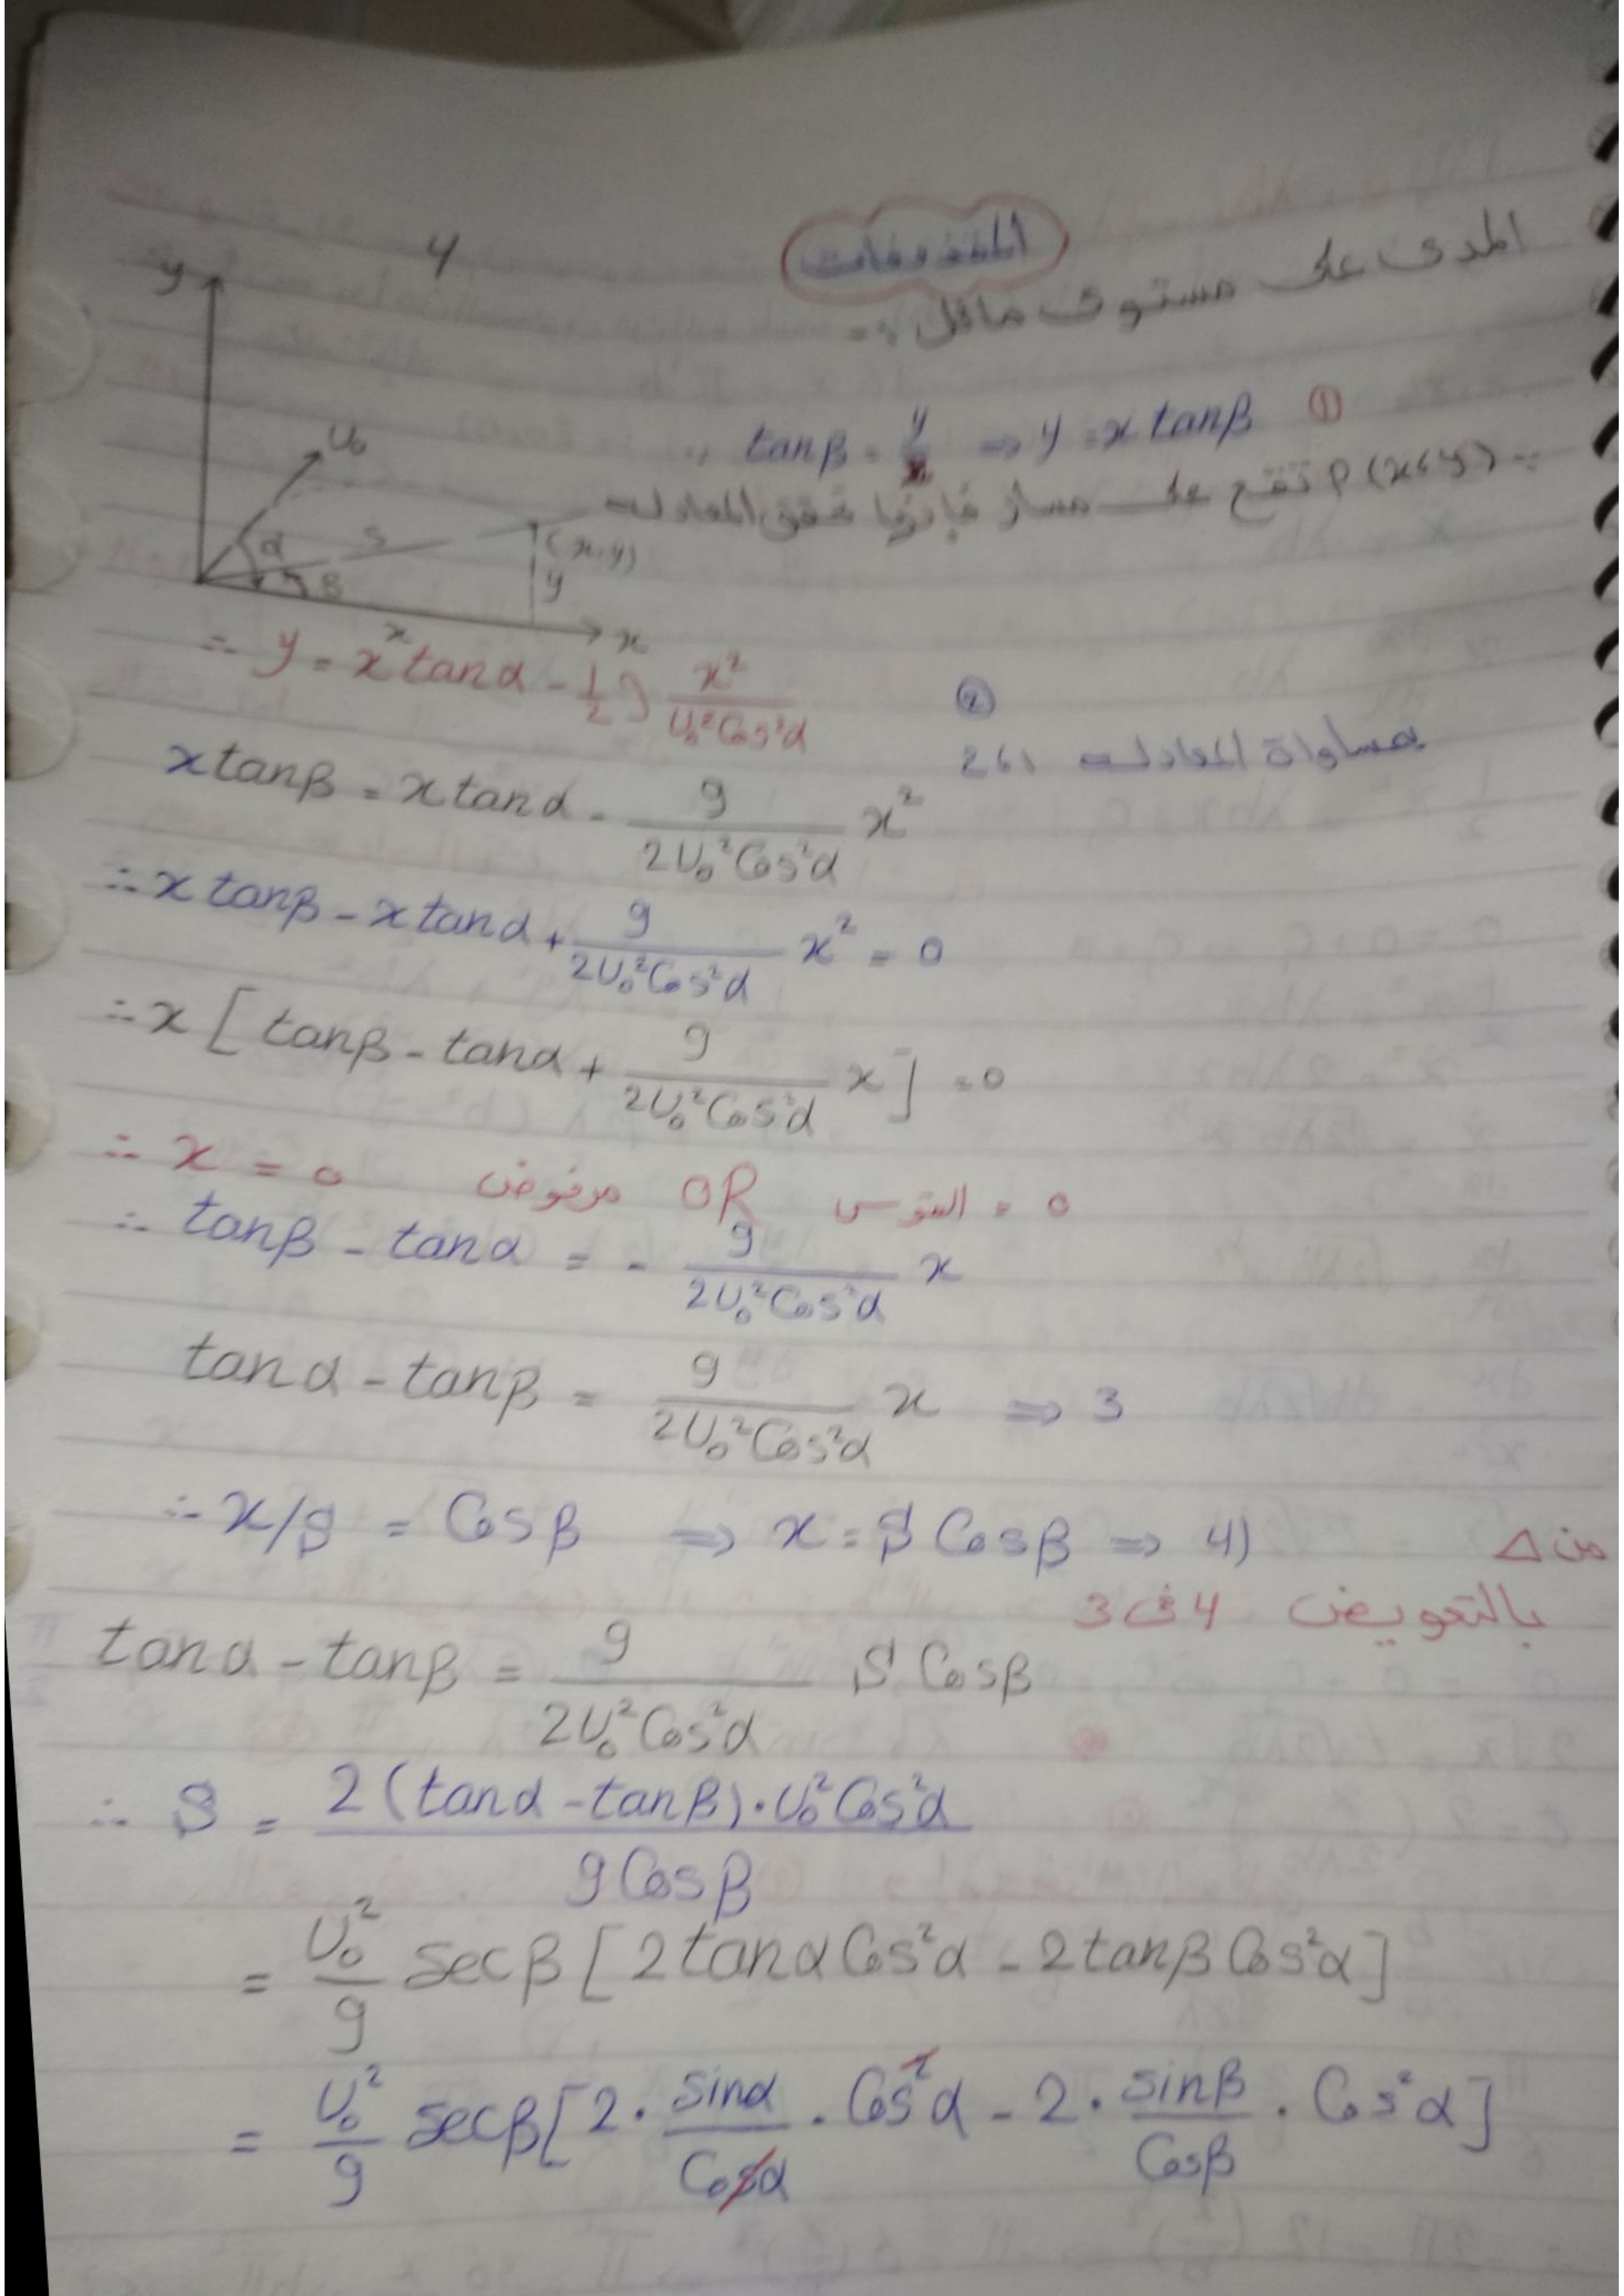 4
المقذوفات
المدى على مستوى مائل :-
∵ tanβ = y/x ⇒ y = x tanβ ①
∵ P(x،y) تقع على مسار فإنها تحقق المعادلة
y
U₀
α
S
β
(x,y)
y
x
x
∴ y = x tanα - 1/2 g x²/(U₀²Cos²α) ②
بمساواة المعادلة 1،2
x tanβ = x tanα - g/(2U₀²Cos²α) x²
∴ x tanβ - x tanα + g/(2U₀²Cos²α) x² = 0
∴ x [ tanβ - tanα + g/(2U₀²Cos²α) x ] = 0
∴ x = 0 مرفوض OR القوس = 0
∴ tanβ - tanα = - g/(2U₀²Cos²α) x
tanα - tanβ = g/(2U₀²Cos²α) x ⇒ 3
من Δ
∴ x/S = Cosβ ⇒ x = S Cosβ ⇒ 4)
بالتعويض 4 فى 3
tanα - tanβ = g/(2U₀²Cos²α) S Cosβ
∴ S = 2(tanα - tanβ)·U₀²Cos²α/(g Cosβ)
= U₀²/g secβ [ 2tanα Cos²α - 2tanβ Cos²α ]
= U₀²/g secβ [ 2 · sinα/Cosα · Cos²α - 2 · sinβ/Cosβ · Cos²α ]